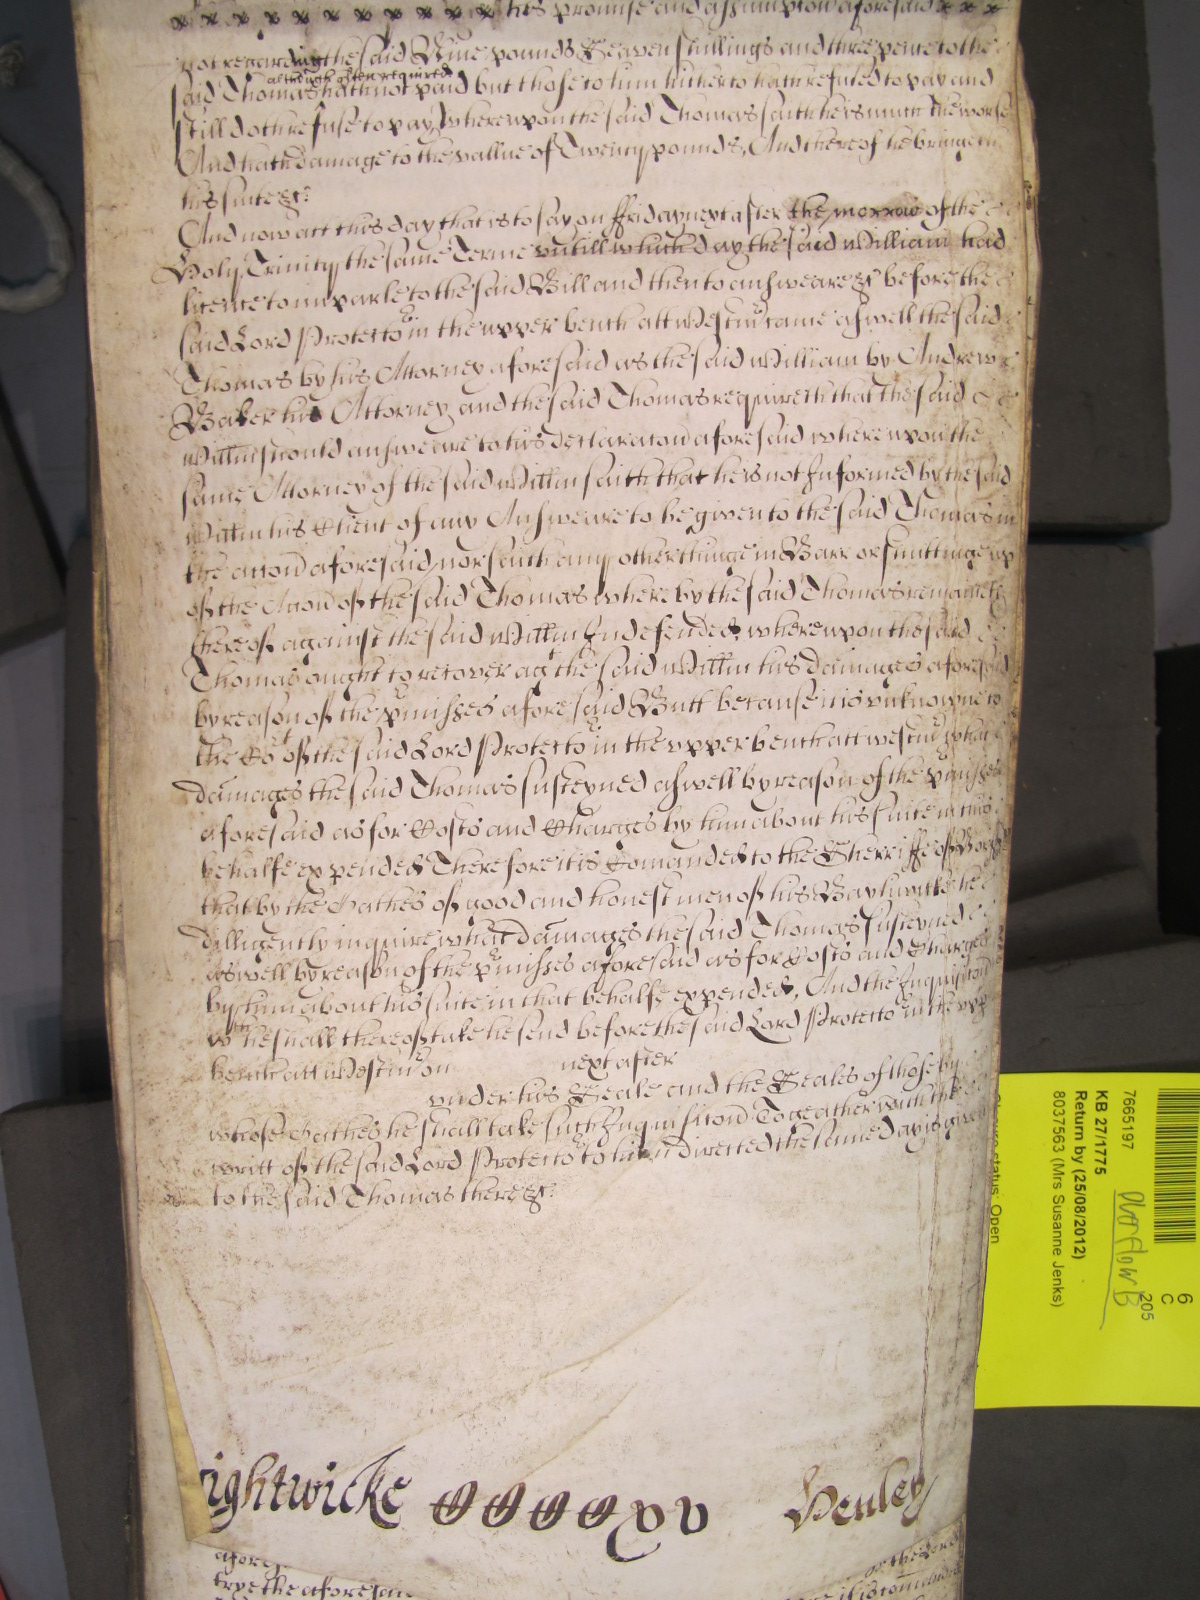 his promise and assumption aforesaid x x x
not regarding the said Nine pounds Seaven shillings and three pence to the
although often required
said Thomas hath not paid but those to him hitherto hath refused to pay and
still doth refuse to pay, whereupon the said Thomas saith he is much the worse
And hath damage to the vallue of Twenty pounds, And thereof he bringeth
his suite &c:
And now att this day that is to say on ffriday next after the morrow of the
Holy Trinity the same Terme untill which day the said William had
licence to imparle to the said Bill and then to answeare &c before the
said Lord Protector in the upper bench att Westmr came aswell the said
Thomas by his Attorney aforesaid as the said William by Andrew
Baker his Attorney and the said Thomas requireth that the said
Willm should answeare to his declaracon aforesaid whereupon the
same Attorney of the said Willm saith that he is not Informed by the said
Willm his Client of any Answeare to be given to the said Thomas in
the accon aforesaid nor saith any other thinge in Barr or
of the Accon of the said Thomas whereby the said Thomas remayneth
thereof against the said Willm Indefended, whereupon the said
Thomas ought to recover agt the said Willm his damages aforesaid
by reason of the pmisses aforesaid Butt because it is unknowne to
the Cot of the said Lord Protector in the upper bench att westmr what
damages the said Thomas susteyned aswell by reason of the pmisses
aforesaid as for Costs and Charges by him about his suite in this
behalfe expended Therefore it is Comanded to the Sherriffe of
that by the Oathes of good and honest men of his Baylywicke he
dilligently inquire what damages the said Thomas susteyned
aswell by reason of the pmisses aforesaid as for Costs and Charges
by him about his suite in that behalfe expended, And the Inquisicon
wch he shall thereof take he send before the said Lord Protector in the upp
bench att Westmr on next after
under his Seale and the Seales of those by
whose Oathes he shall take such Inquisicon Togeather with the
writt of the said Lord Protector to him directed the same day is given
to the said Thomas there &c:
ightwicke xv Henley
afores
trye the aforesaid
or the Lord
KB 27/1775
7665197
Return by (25/08/2012)
8037563 (Mrs Susanne Jenks)
status: Open
Overflow B
205
6
C